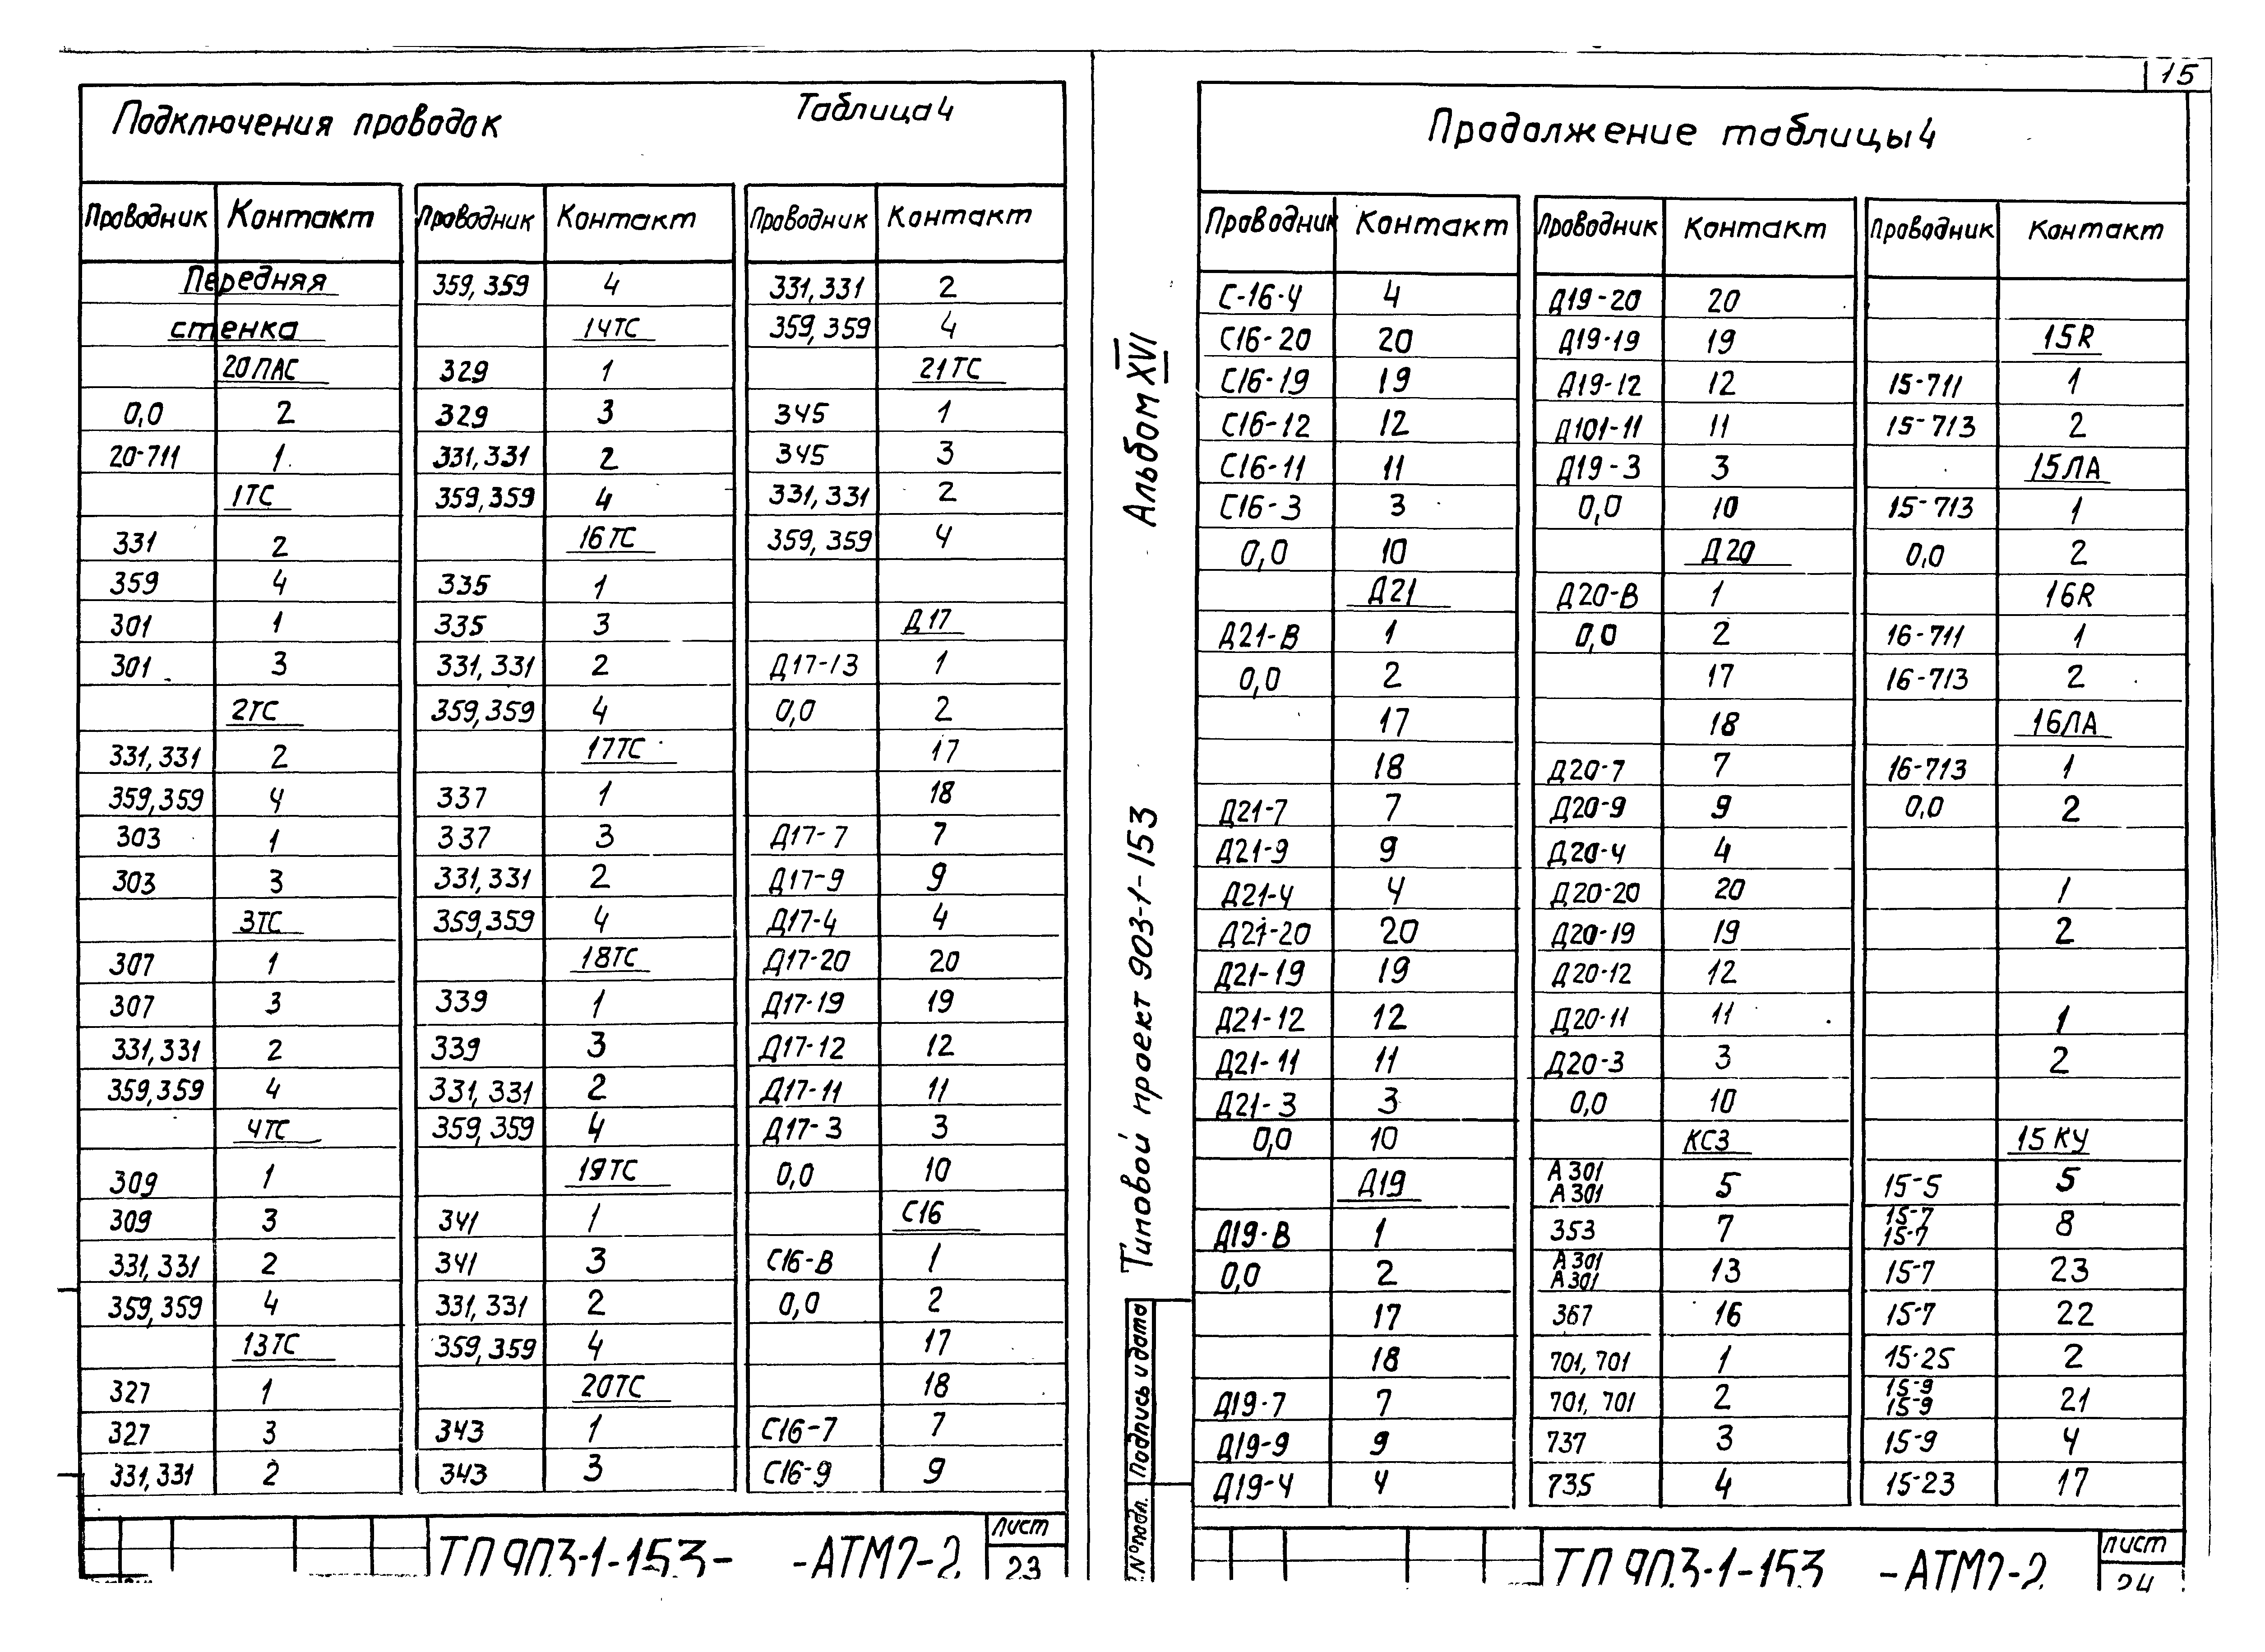 15
Подключения проводок
Таблица 4
Проводник Контакт Проводник Контакт Проводник Контакт
Передняя 359, 359 4 331, 331 2
стенка 14ТС 359, 359 4
20ЛАС 329 1 21ТС
0,0 2 329 3 345 1
20-711 1 331, 331 2 345 3
1ТС 359, 359 4 331, 331 2
331 2 16ТС 359, 359 4
359 4 335 1
301 1 335 3 Д17
301 3 331, 331 2 Д17-13 1
2ТС 359, 359 4 0,0 2
331, 331 2 17ТС 17
359, 359 4 337 1 18
303 1 337 3 Д17-7 7
303 3 331, 331 2 Д17-9 9
3ТС 359, 359 4 Д17-4 4
307 1 18ТС Д17-20 20
307 3 339 1 Д17-19 19
331, 331 2 339 3 Д17-12 12
359, 359 4 331, 331 2 Д17-11 11
4ТС 359, 359 4 Д17-3 3
309 1 19ТС 0,0 10
309 3 341 1 С16
331, 331 2 341 3 С16-В 1
359, 359 4 331, 331 2 0,0 2
13ТС 359, 359 4 17
327 1 20ТС 18
327 3 343 1 С16-7 7
331, 331 2 343 3 С16-9 9
ТП 903-1-153- -АТМ2-2
Лист
23
Альбом XVI
Типовой проект 903-1-153
Подпись и дата
№ подл.
Продолжение таблицы 4
Проводник Контакт Проводник Контакт Проводник Контакт
С-16-4 4 Д19-20 20
С16-20 20 Д19-19 19 15R
С16-19 19 Д19-12 12 15-711 1
С16-12 12 Д101-11 11 15-713 2
С16-11 11 Д19-3 3 15ЛА
С16-3 3 0,0 10 15-713 1
0,0 10 Д20 0,0 2
Д21 Д20-В 1 16R
Д21-В 1 0,0 2 16-711 1
0,0 2 17 16-713 2
17 18 16ЛА
18 Д20-7 7 16-713 1
Д21-7 7 Д20-9 9 0,0 2
Д21-9 9 Д20-4 4
Д21-4 4 Д20-20 20 1
Д21-20 20 Д20-19 19 2
Д21-19 19 Д20-12 12
Д21-12 12 Д20-11 11 1
Д21-11 11 Д20-3 3 2
Д21-3 3 0,0 10
0,0 10 КС3 15КУ
Д19 А301 А301 5 15-5 5
Д19-В 1 353 7 15-7 15-7 8
0,0 2 А301 А301 13 15-7 23
17 367 16 15-7 22
18 701, 701 1 15-25 2
Д19-7 7 701, 701 2 15-9 15-9 21
Д19-9 9 737 3 15-9 4
Д19-4 4 735 4 15-23 17
ТП 903-1-153 -АТМ2-2
Лист
24